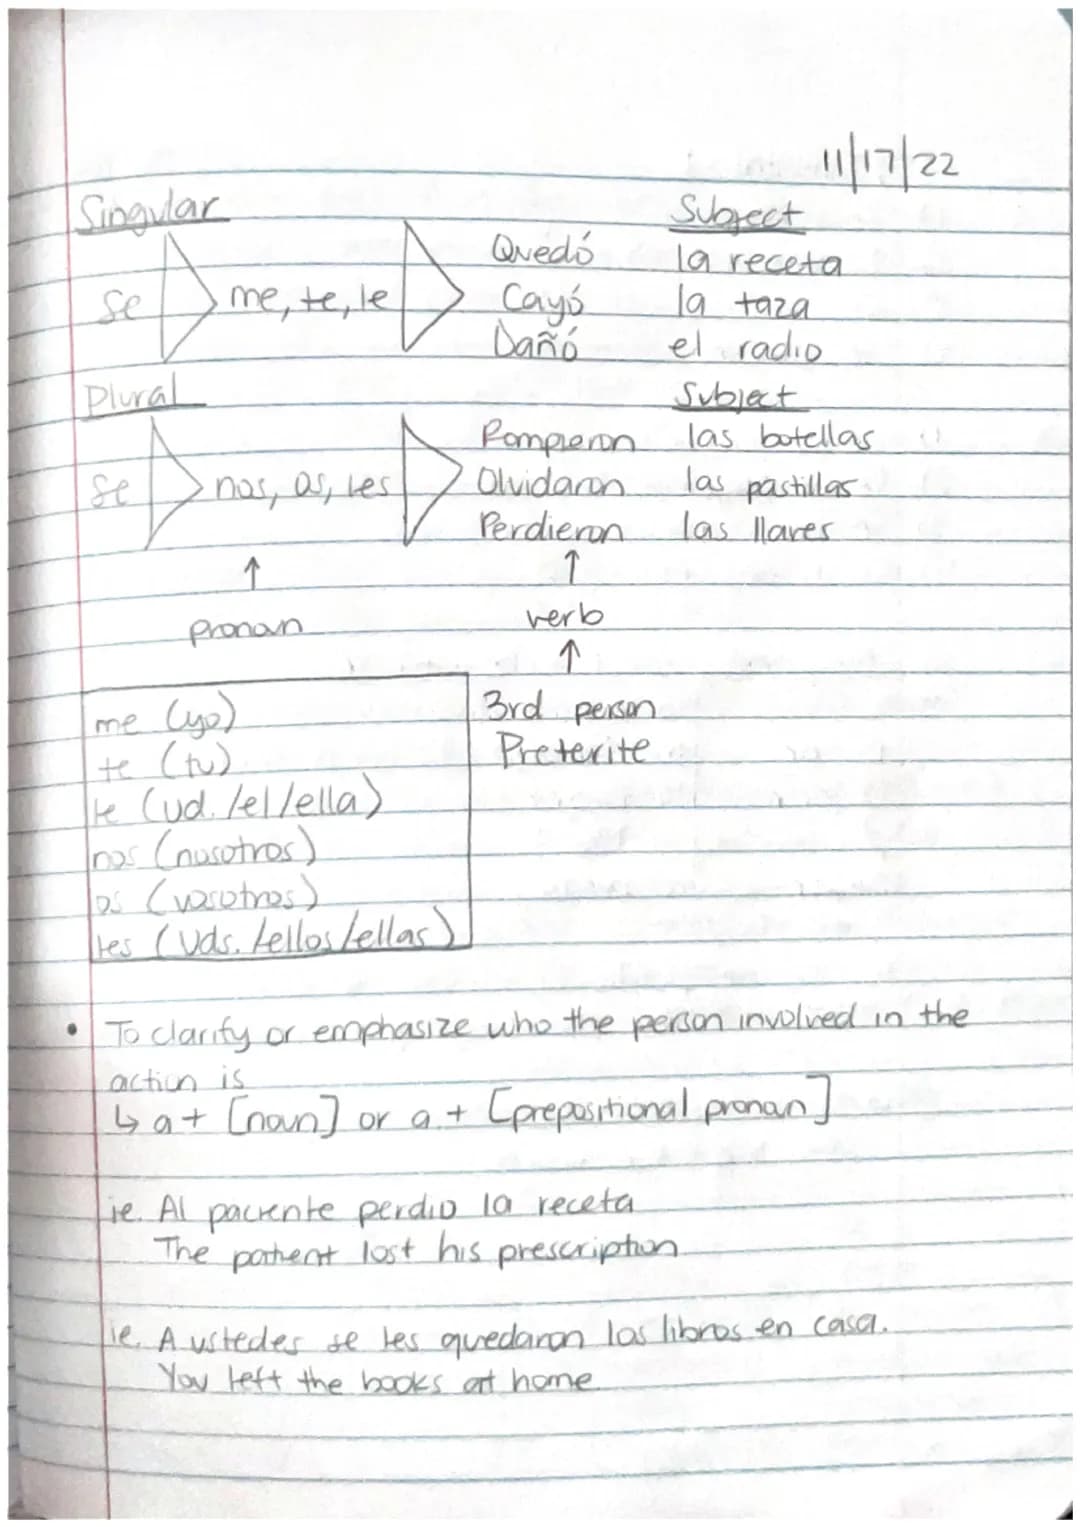 11/17/22
Singular Subject
Quedó la receta
se me, te, le Cayó la taza
Dañó el radio
Plural Subject
Rompieron las botellas
se nos, os, les Olvidaron las pastillas
Perdieron las llaves
↑ ↑
pronoun verb
↑
me (yo) 3rd person
te (tu) Preterite
le (ud./el/ella)
nos (nosotros)
os (vosotros)
les (Uds./ellos/ellas)
• To clarify or emphasize who the person involved in the
action is
↳ a + [noun] or a + [prepositional pronoun]
ie. Al paciente perdio la receta
The patient lost his prescription
ie. A ustedes se les quedaron los libros en casa.
You left the books at home